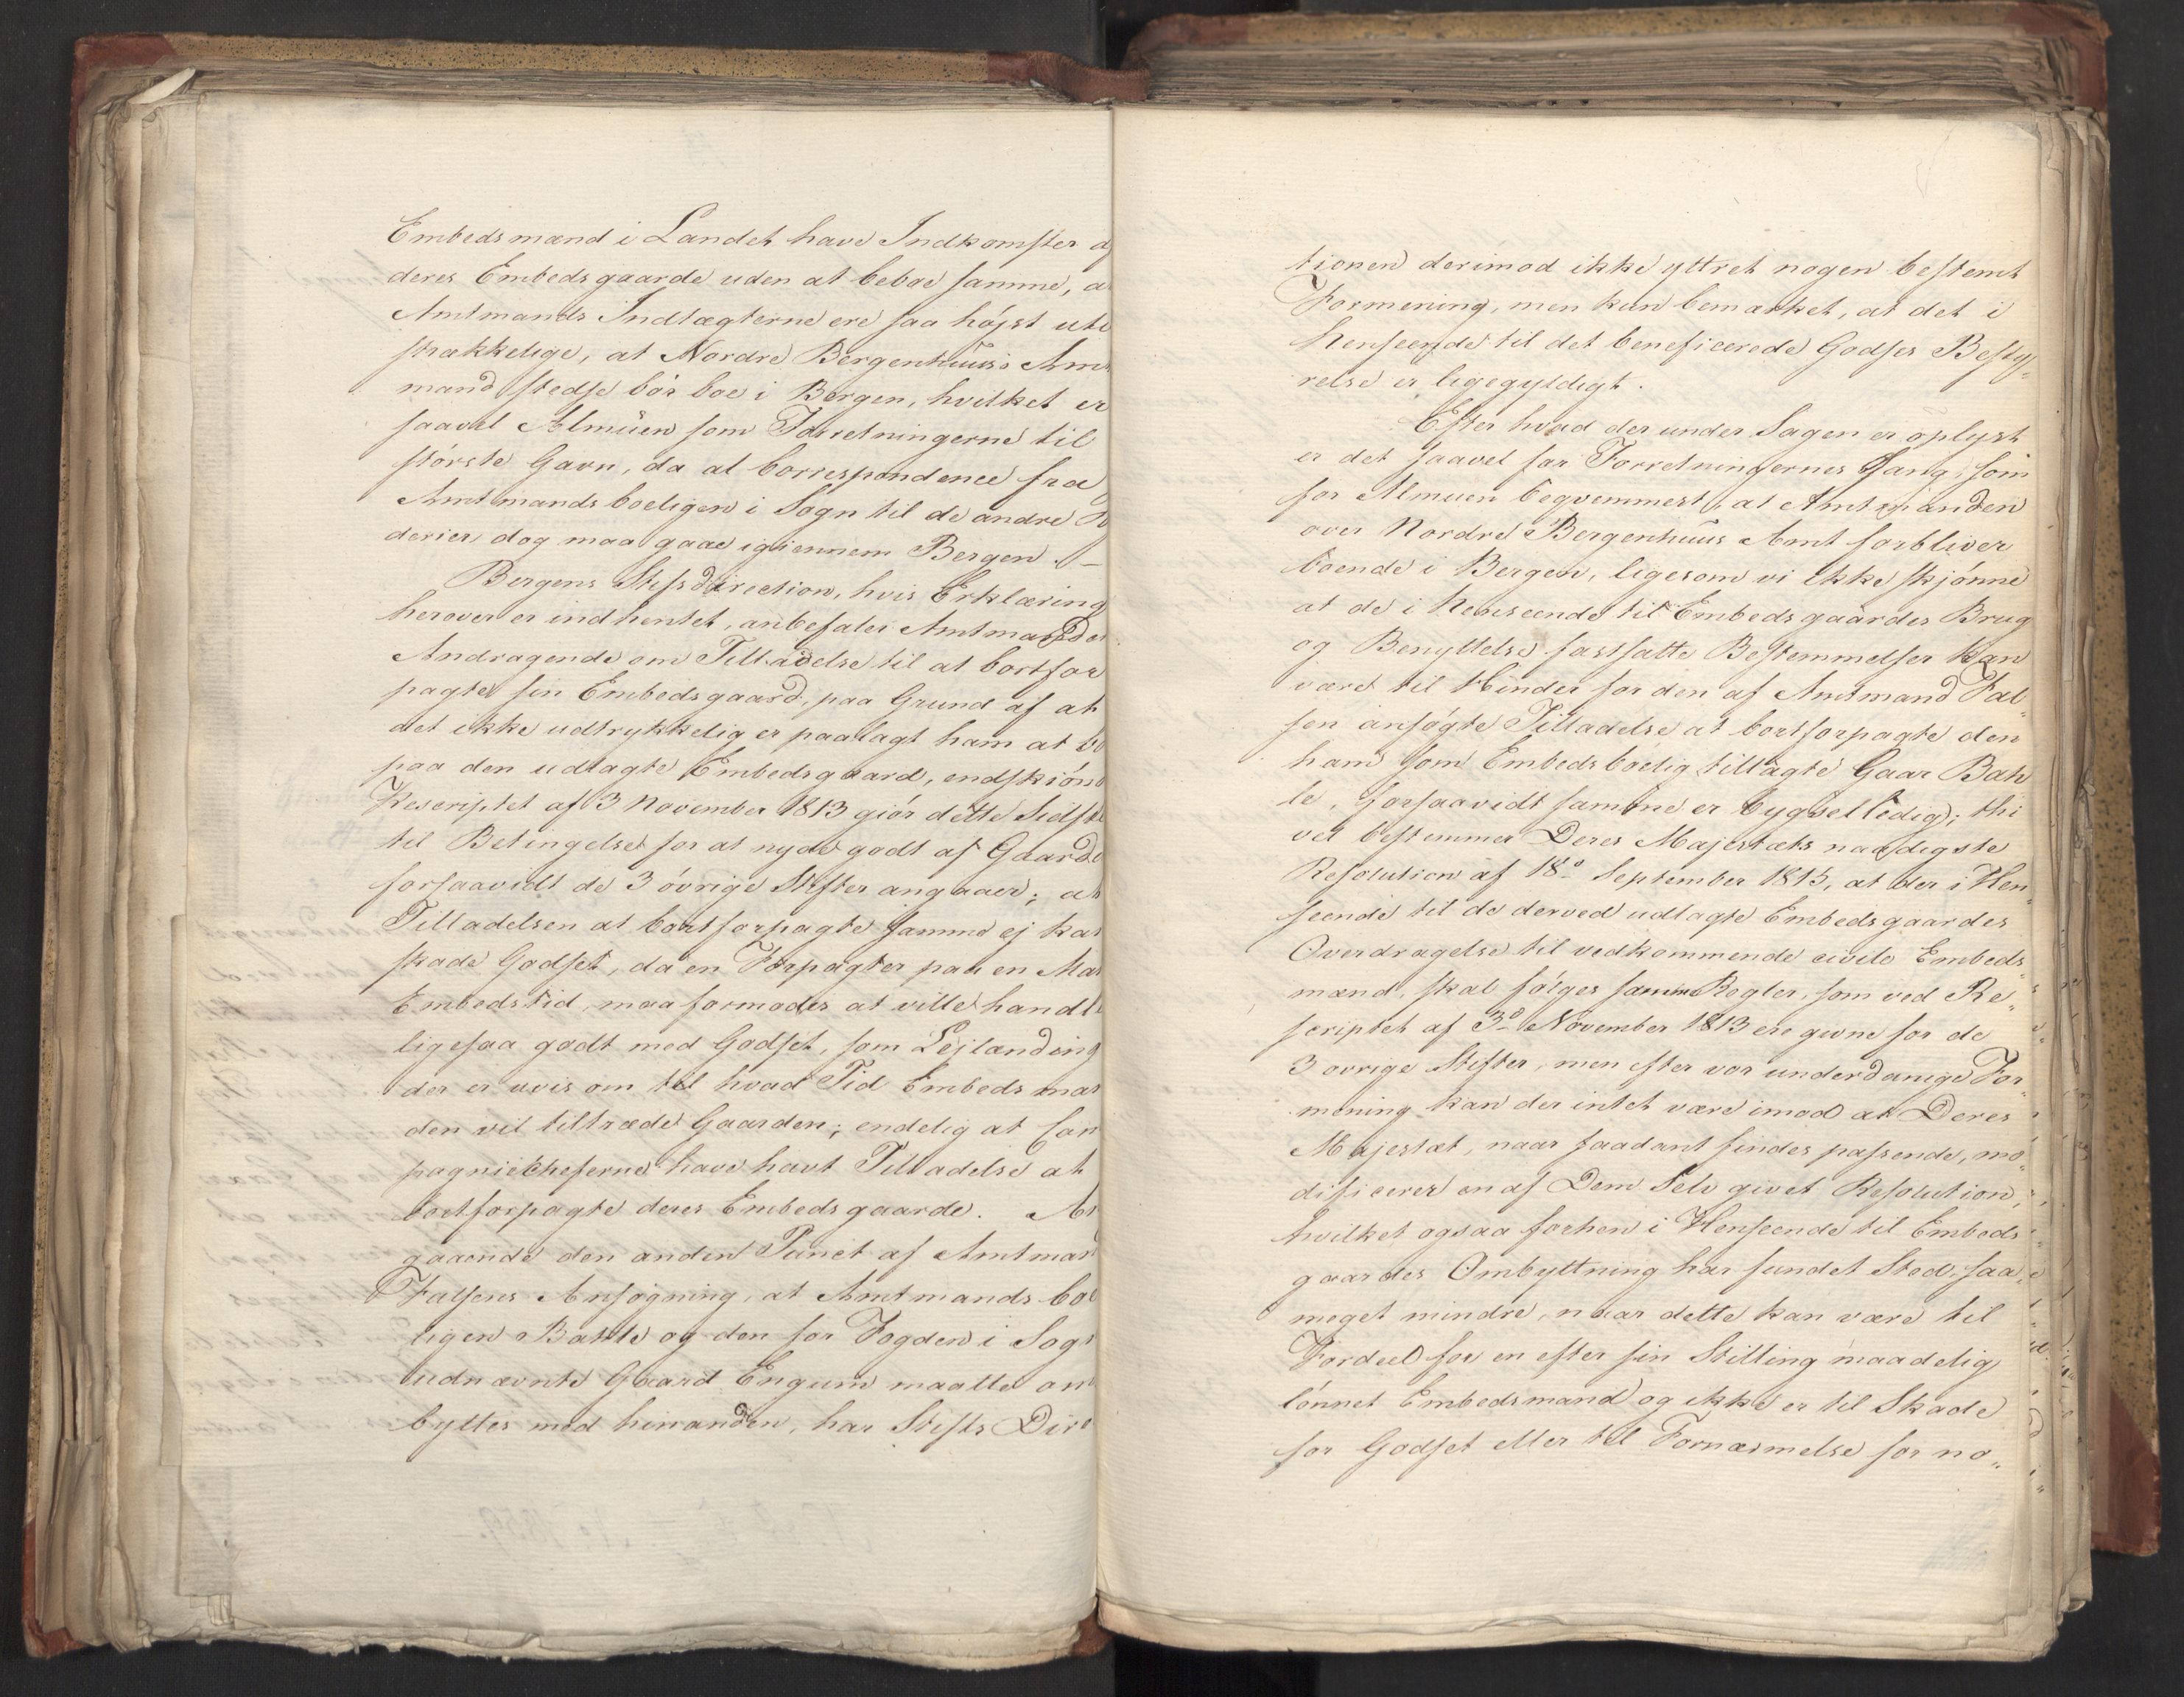 Embedsmænd i Landet have Indkomster a
deres Embedsgaarde uden at beboe samme, a
Amtmands Indtægterne ere saa højst uti
strækkelige, at Nordre Bergenhuus's Am
mand stedse bør boe i Bergen, hvilket er
saavel Almuen som Forretningerne til
største Gavn, da al Correspondence fra
Amtmandsboeligen i Sogn til de andre
derier dog maa gaae igiennem Bergen. –
Bergens Stiftsdirection, hvis Erklæring
herover er indhentet, anbefaler Amtmanden
Andragende om Tilladelse til at bortfor
pagte sin Embedsgaard, paa Grund af at
det ikke udtrykkelig er paalagt ham at bo
paa den udlagte Embedsgaard, endskiøn
Rescriptet af 3 November 1813 giør dette Sidste
til Betingelse for at nyde godt af Gaarde
forsaavidt de 3 øvrige Stifter angaaer; at
Tilladelsen at bortforpagte samme ej kan
skade Godset, da en Forpagter paa en Man
Embedstid, maa formodes at ville handle
ligesaa godt med Godset, som Lejlænding
der er uvis om til hvad Tid Embedsman
den vil tiltræde Gaarden; endelig at Com
pagniecheferne have havt Tilladelse at
bortforpagte deres Embedsgaarde. An
gaaende den anden Punct af Amtmand
Falsens Ansøgning, at Amtmandsboe
ligen Bahle og den for Fogden i Sogn
udnævnte Gaard Engum maatte om
byttes med hinanden, har Stifts Dire
tionen derimod ikke yttret nogen bestemt
Formening, men kun bemærket, at det i
Henseende til det beneficerede Godses Besty„
relse er ligegyldigt.
Efter hvad der under Sagen er oplyst
er det saavel for Forretningernes Gang, som
for Almuen beqvemmest, at Amtmanden
over Nordre Bergenhuus Amt forbliver
boende i Bergen, ligesom vi ikke skjønne
at de i Henseende til Embedsgaardes Brug
og Benyttelse fastsatte Bestemmelser kan
være til Hinder for den af Amtmand Fal„
sen ansøgte Tilladelse at bortforpagte den
ham som Embedsboelig tillagte Gaar Bah
le, forsaavidt samme er bygselledig; thi
vel bestemmer Deres Majestæts naadigste
Resolution af 18de September 1815, at der i Hen„
seende til de derved udlagte Embedsgaardes
Overdragelse til vedkommende civile Embeds„
mænd, skal følges samme Regler, som ved Re„
scriptet af 3de November 1813 ere givne for de
3 øvrige Stifter, men efter vor underdanige For„
mening kan der intet være imod at Deres
Majestæt, naar saadant findes passende, mo„
dificerer en af Dem Selv givet Resolution,
hvilket ogsaa forhen i Henseende til Embeds„
gaardes Ombyttning har fundet Sted, saa„
meget mindre, naar dette kan være til
Fordeel for en efter sin Stilling maadelig
lønnet Embedsmand og ikke er til Skade
for Godset eller til Fornærmelse for no„